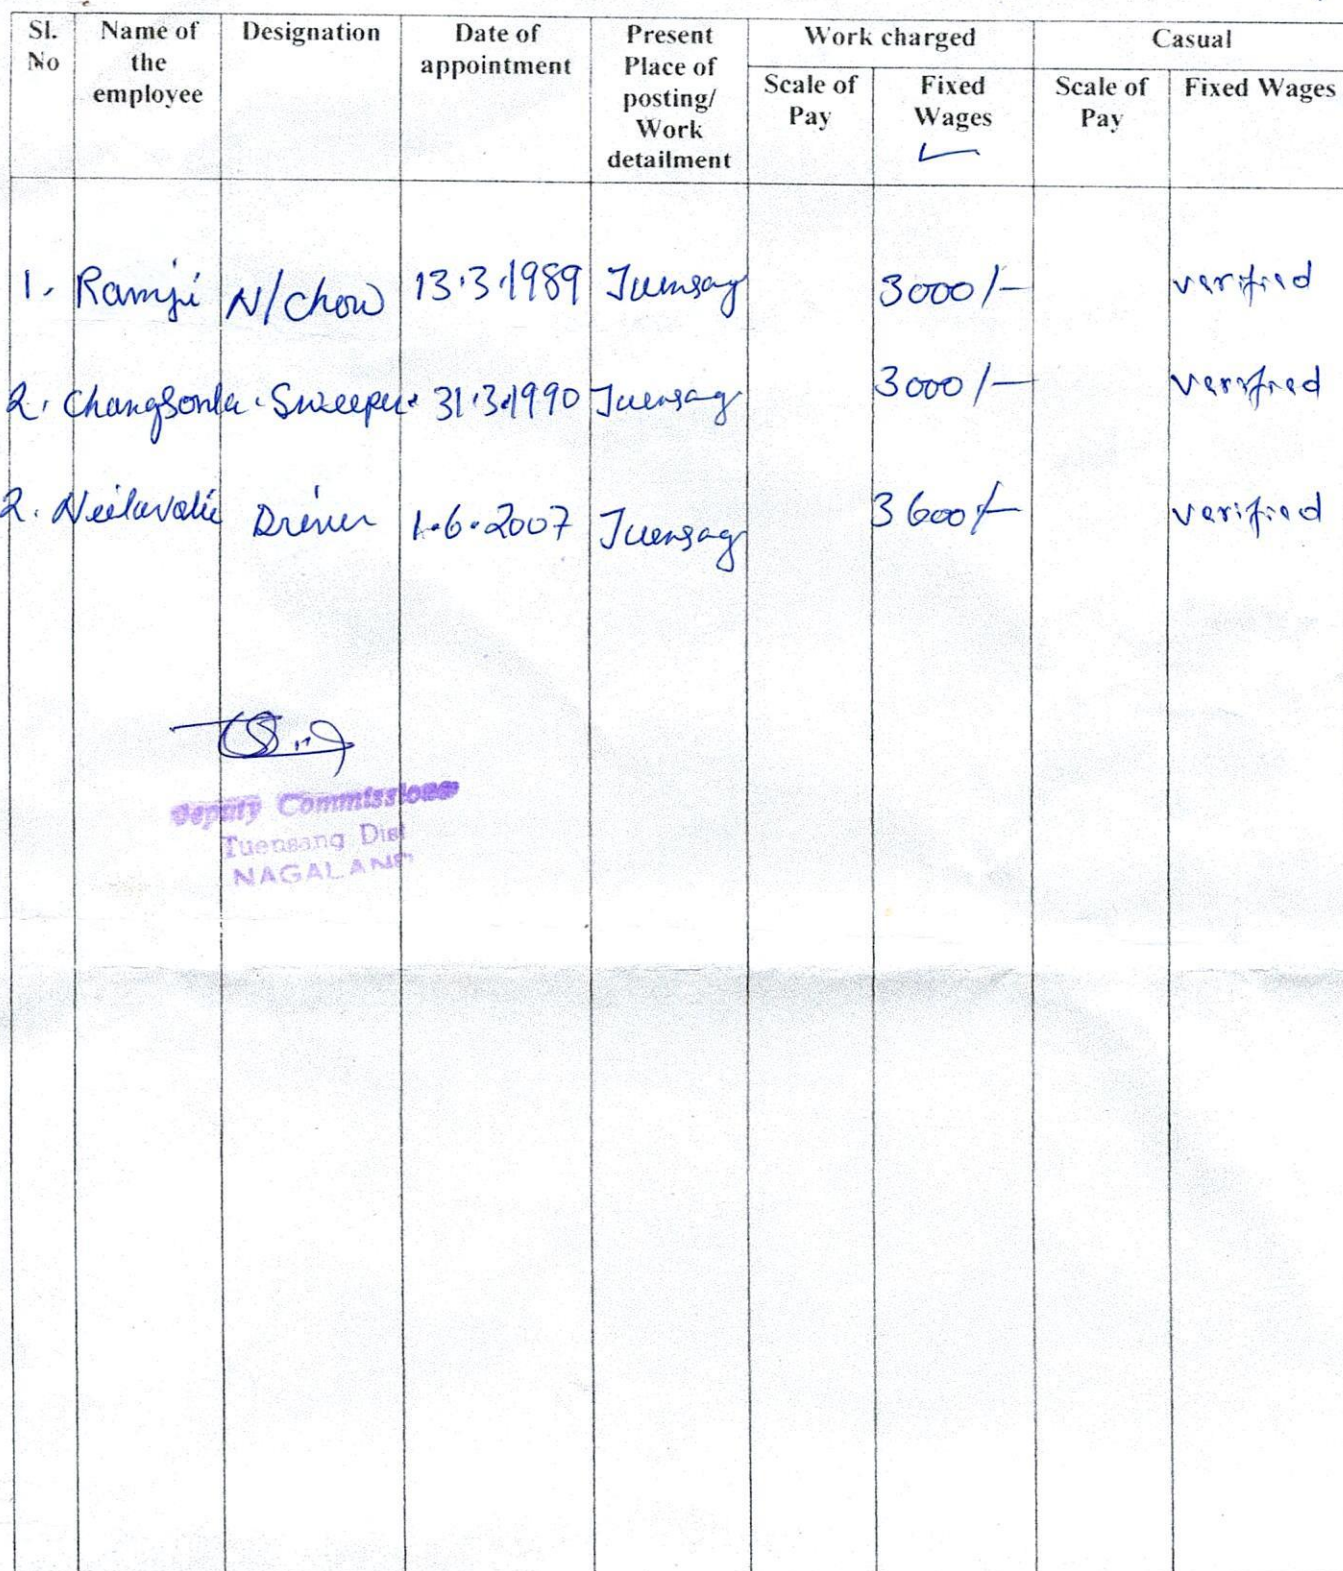 Sl. No | Name of the employee | Designation | Date of appointment | Present Place of posting/ Work detailment | Work charged | Casual
Scale of Pay | Fixed Wages | Scale of Pay | Fixed Wages
1. Ramji N/Chow 13.3.1989 Tuensang 3000/- verified
2. Changsonla Sweeper 31.3.1990 Tuensang 3000/- verified
2. Driver 1.6.2007 Tuensang 3600/- verified
Deputy Commissioner
Tuensang Dist
NAGALAND